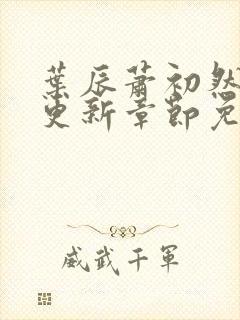 葉辰蕭初然
更新章節免
威武千軍